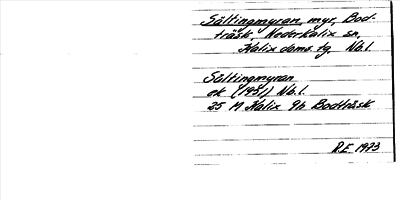 Sältingmyran, myr, Bod-
träsk, Nederkalix sn,
Kalix doms. tg. Nb.l.
Sältingmyran
ek (1951) Nb.l.
25 M Kalix 9h Bodträsk
R.E. 1973